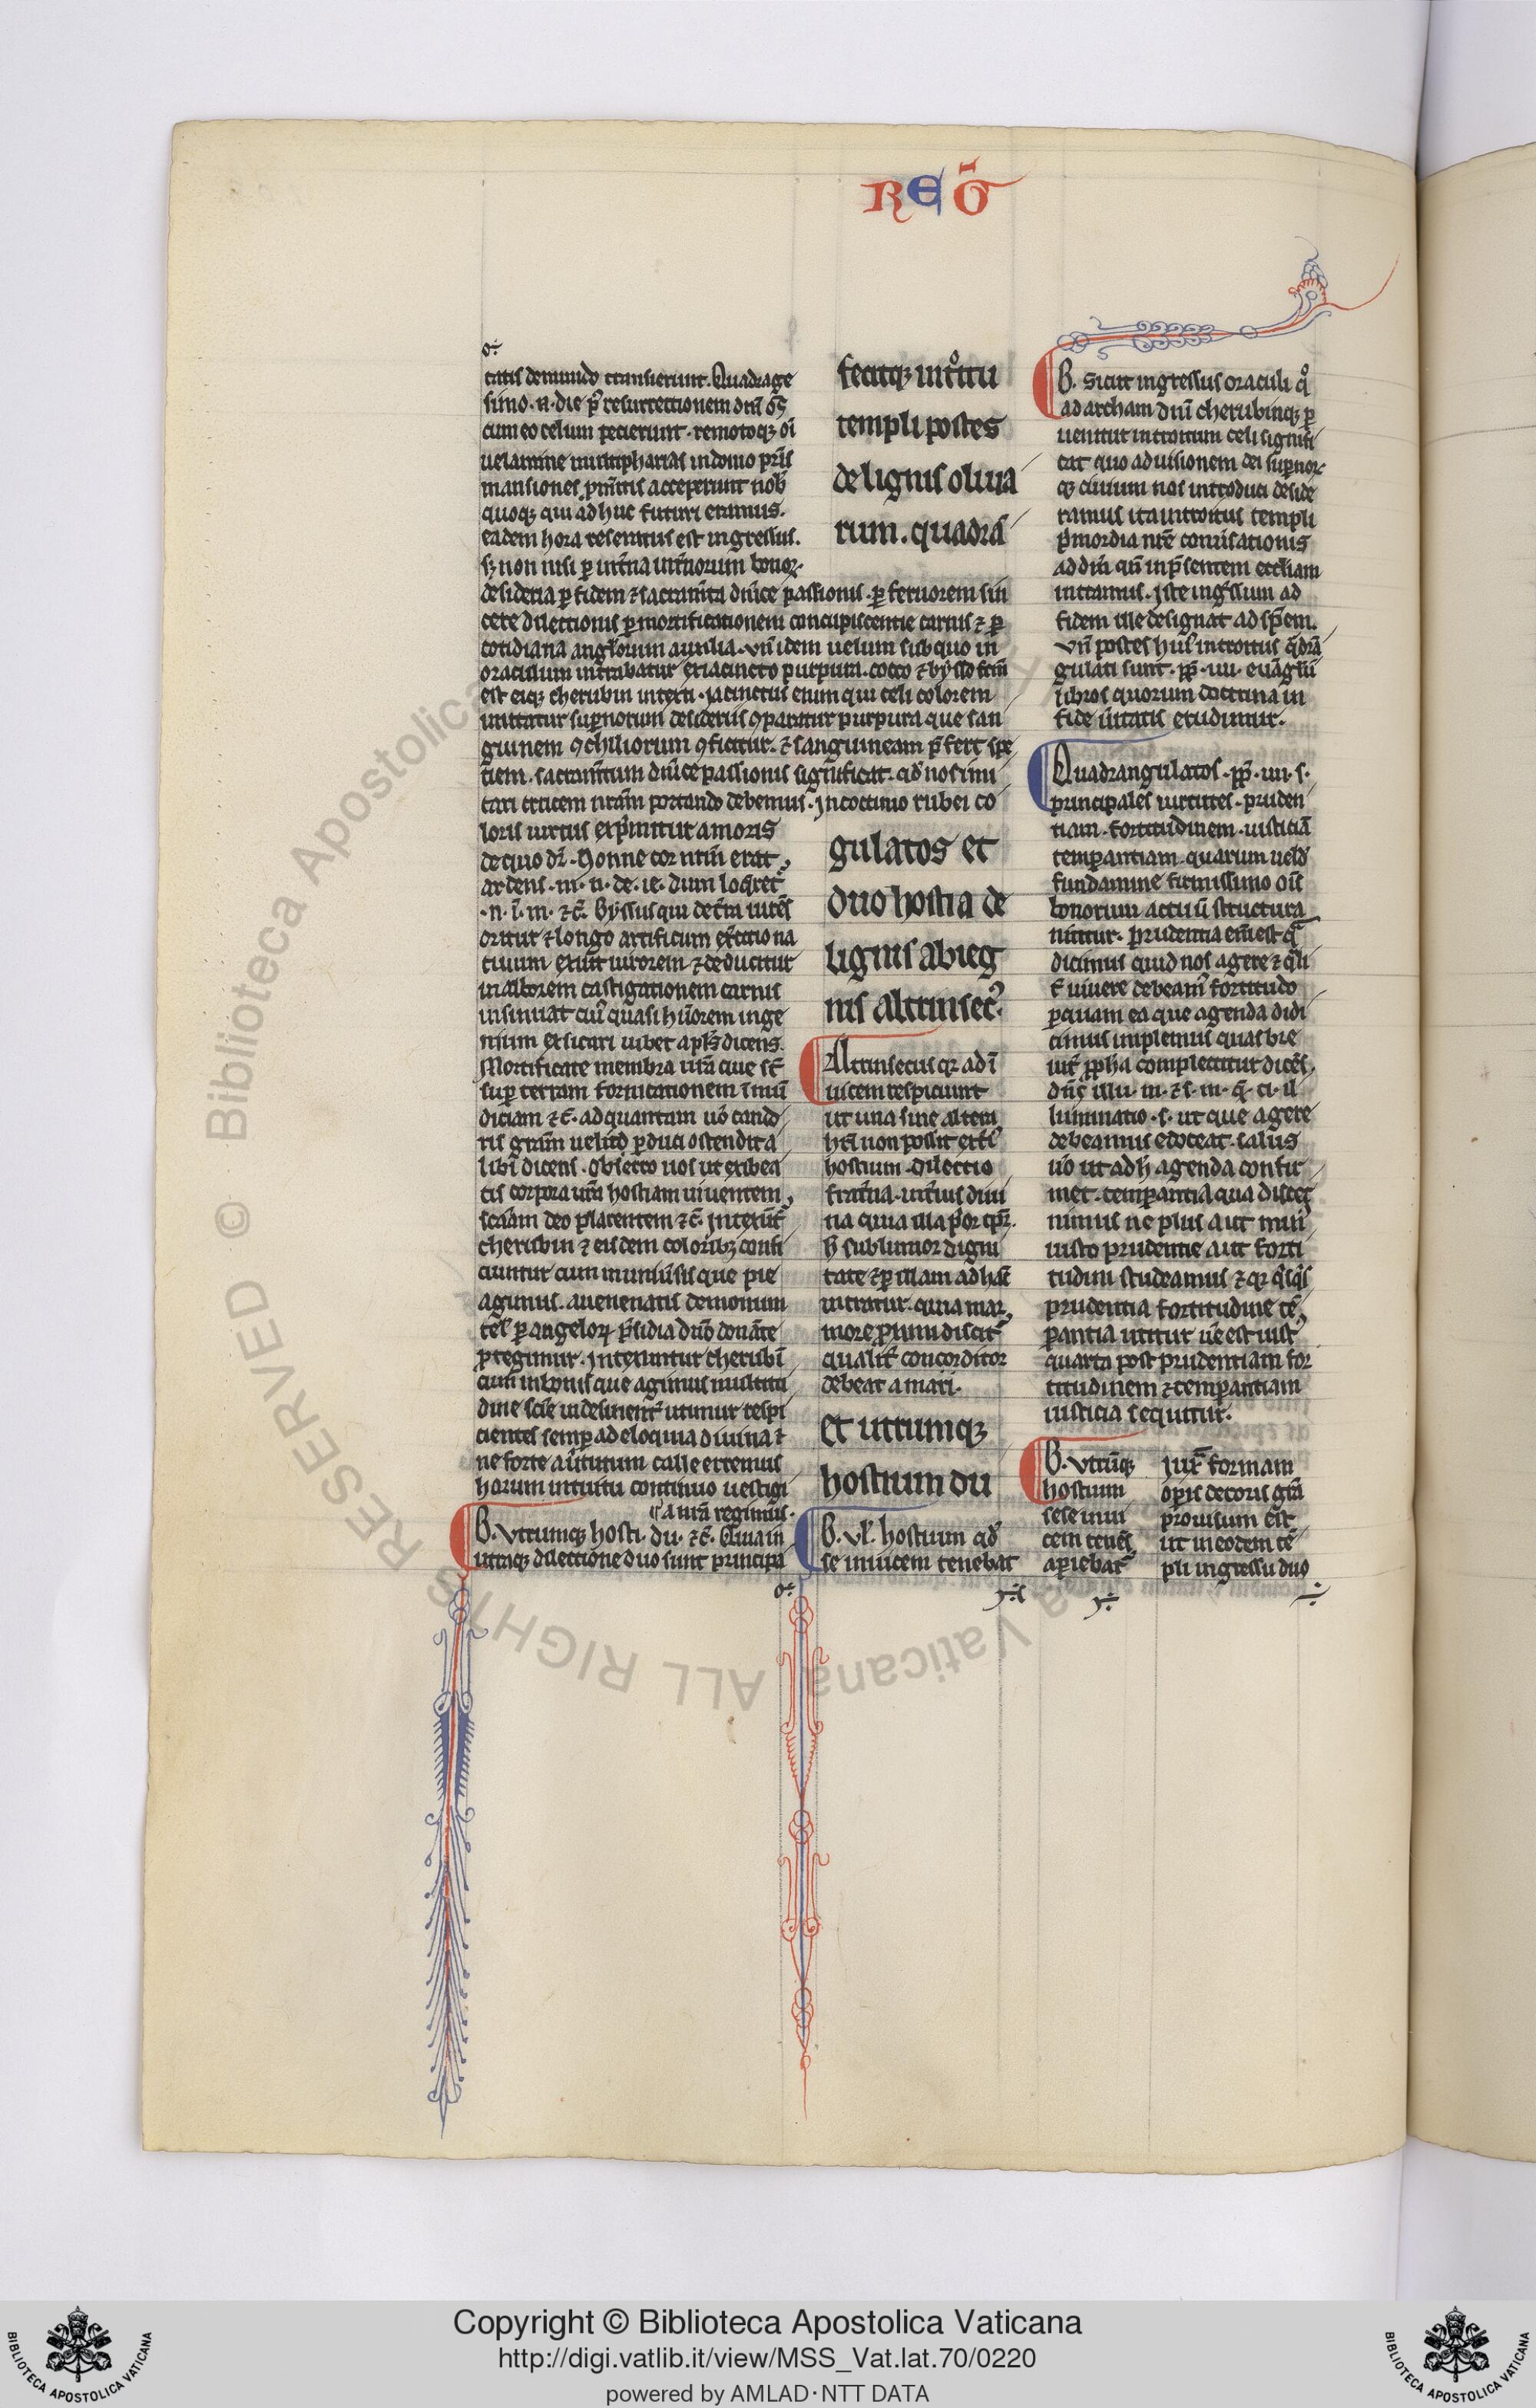 REG̃
tatis de mundo transierunt. Quadrage
simo .n. die p̱ resurrectionem dnī oēs
cum eo celum petierunt. remotoqꝫ oī
uelamine multipharias in domo pr̄is
mansiones ꝓmissas acceperunt nob̄
quoqꝫ qui adhuc futuri eramus.
eadem hora reseratus est ingressus.
sꝫ non nisi ꝑ int̄na int̄norum bonoꝝ
desideria ꝑ fidem ⁊ sacram̄ta dn̄ice passionis. ꝑ feruorem sin
cere dilectionis ꝑ mortificationem concupiscentie carnis ⁊ ꝑ
cotidiana anglorum auxilia. vn̄ idem uelum sub quo in
oraculum intrabatur ex iacincto purpura. cocco ⁊ bysso fc̄m
est eiqꝫ cherubin intexti. iacinctus enim qui celi colorem
imitatur suꝑnorum desideriis ꝯparatur purpura que san
guinem ꝯchiliorum ꝯficitur. ⁊ sanguineam p̄fert spe
ciem. sacram̄tum dn̄ice passionis significat. qd̄ nos imi
tari crucem nr̄am portando debemus. In coccino rubei co
loris uirtus exp̄mitur amoris
de quo dr̄. Nonne cor nr̄m erat
ardens .in. n. de. ie. dum loq̄ret᷑
.n. ī. m. ⁊c̄. Byssus qui de t̄ra uirēs
oritur ⁊ longo artificum ex̄citio na
tiuum exuit uirorem ⁊ deducitur
in alborem castigationem carnis
insinuat cui᷒ quasi hūorem inge
nitum exsiccari iubet apl̄s dicens.
Mortificate membra ur̄a que st̄
suꝑ terram fornicationem īmū
diciam ⁊c̄. ad quantam uō cando
ris gr̄am uelit᷑ ꝑduci ostendit a
libi dicens. Obsecro uos ut exibea
tis corpora ur̄a hostiam uiuentem
sc̄am deo placentem ⁊c̄. Intexūt᷑
cherubin ⁊ eisdem coloribꝫ confi
ciuntur cum in uniūsis que pie
agimus. a uenenatis demonum
tel᷒ ꝑ angeloꝝ p̄sidia dn̄o donāte
ꝓtegimur. Intexuntur cherubī
cum in bonis que agimus multitu
dine scīe indesinent᷑ utimur respi
cientes semꝑ ad eloquia diuina ⁊
ne forte a ūtutum calle erremus
horum intuitu continuo uestigi
a nr̄a regimus.
B. Vtrumqꝫ hosti. du. ⁊c̄. Quia in
utraqꝫ dilectione duo sunt principa
fecitqꝫ int̊itu
templi postes
de lignis oliua
rum. quadrā
gulatos et
duo hostia de
lignis abieg
nis altrinsec᷒.
Altrinsecus qꝛ ad ī
uicem respiciunt
ut una sine altera
hr̄i non possit. ext̄i᷒
hostium. dilectio
frat̄na. int̄ius diui
na quia illa p̄or tp̄r.
h̄ sublimior digni
tate ⁊ ꝑ illam ad hāc
intratur. quia in a
more ꝓximi discit᷑
qualit᷑ conditor
debeat amari.
et utrumqꝫ
hostium du
B. vl̄. hostium qd̄
se inuicem tenebat
B. Sicut ingressus oraculi q̊
ad archam dnī cherubinqꝫ ꝑ
uenitur introitum celi signifi
cat quo ad uisionem dei suꝑnoꝝ
qꝫ ciuium nos introduci deside
ramus ita introitus templi
p̄mordia nr̄e conūsationis
ad dm̄ qn̄ in p̄sentem ecc̄liam
intramus. Iste ingr̄ssum ad
fidem ille designat ad spēm.
Vn̄ postes hui᷒ introitus q̄drā
gulati sunt. pp̄. iiii. euāglīi
libros quorum doctrina in
fide ūitatis erudimur.
Quadrangulatos. pp̄. iiii. s.
principales uirtutes. pruden
tiam. fortitudinem. iusticiā
temꝑantiam. quarum uelud
fundamine firmissimo oīs
bonorum actuū structura
nititur. Prudentia em̄ est qͣ
dicimus quid nos agere ⁊ q̄li
t᷑ uiuere debeam᷒. fortitudo
ꝑ quam ea que agenda didi
cimus implemus quas bre
uit᷑ ꝓpha complectitur dicēs.
Dn̄s illu. m. ⁊ s. m. q̄. ti. il
luminatio .s. ut que agere
debeamus edoceat. salus
uō ut ad h̄ agenda confir
met. temꝑantia qua discer
nimus ne plus aut min᷒
iusto prudentie aut forti
tudini studeamus ⁊ qꝛ q̄sq̄s
prudentia fortitudine tē
ꝑantia utitur ūe est iust᷒
quarta post prudentiam for
titudinem ⁊ temꝑantiam
iusticia sequitur.
B. Vtrūqꝫ
hostium
sese inui
cem tenēs
aꝑiebat᷑
Iux̄ formam
oꝑis decoris gr̄a
ꝓuisum est
ut in eodem tē
pli ingressu duo
Copyright © Biblioteca Apostolica Vaticana
http://digi.vatlib.it/view/MSS_Vat.lat.70/0220
powered by AMLAD·NTT DATA
BIBLIOTECA APOSTOLICA VATICANA
BIBLIOTECA APOSTOLICA VATICANA
© Biblioteca Apostolica Vaticana ALL RIGHTS RESERVED